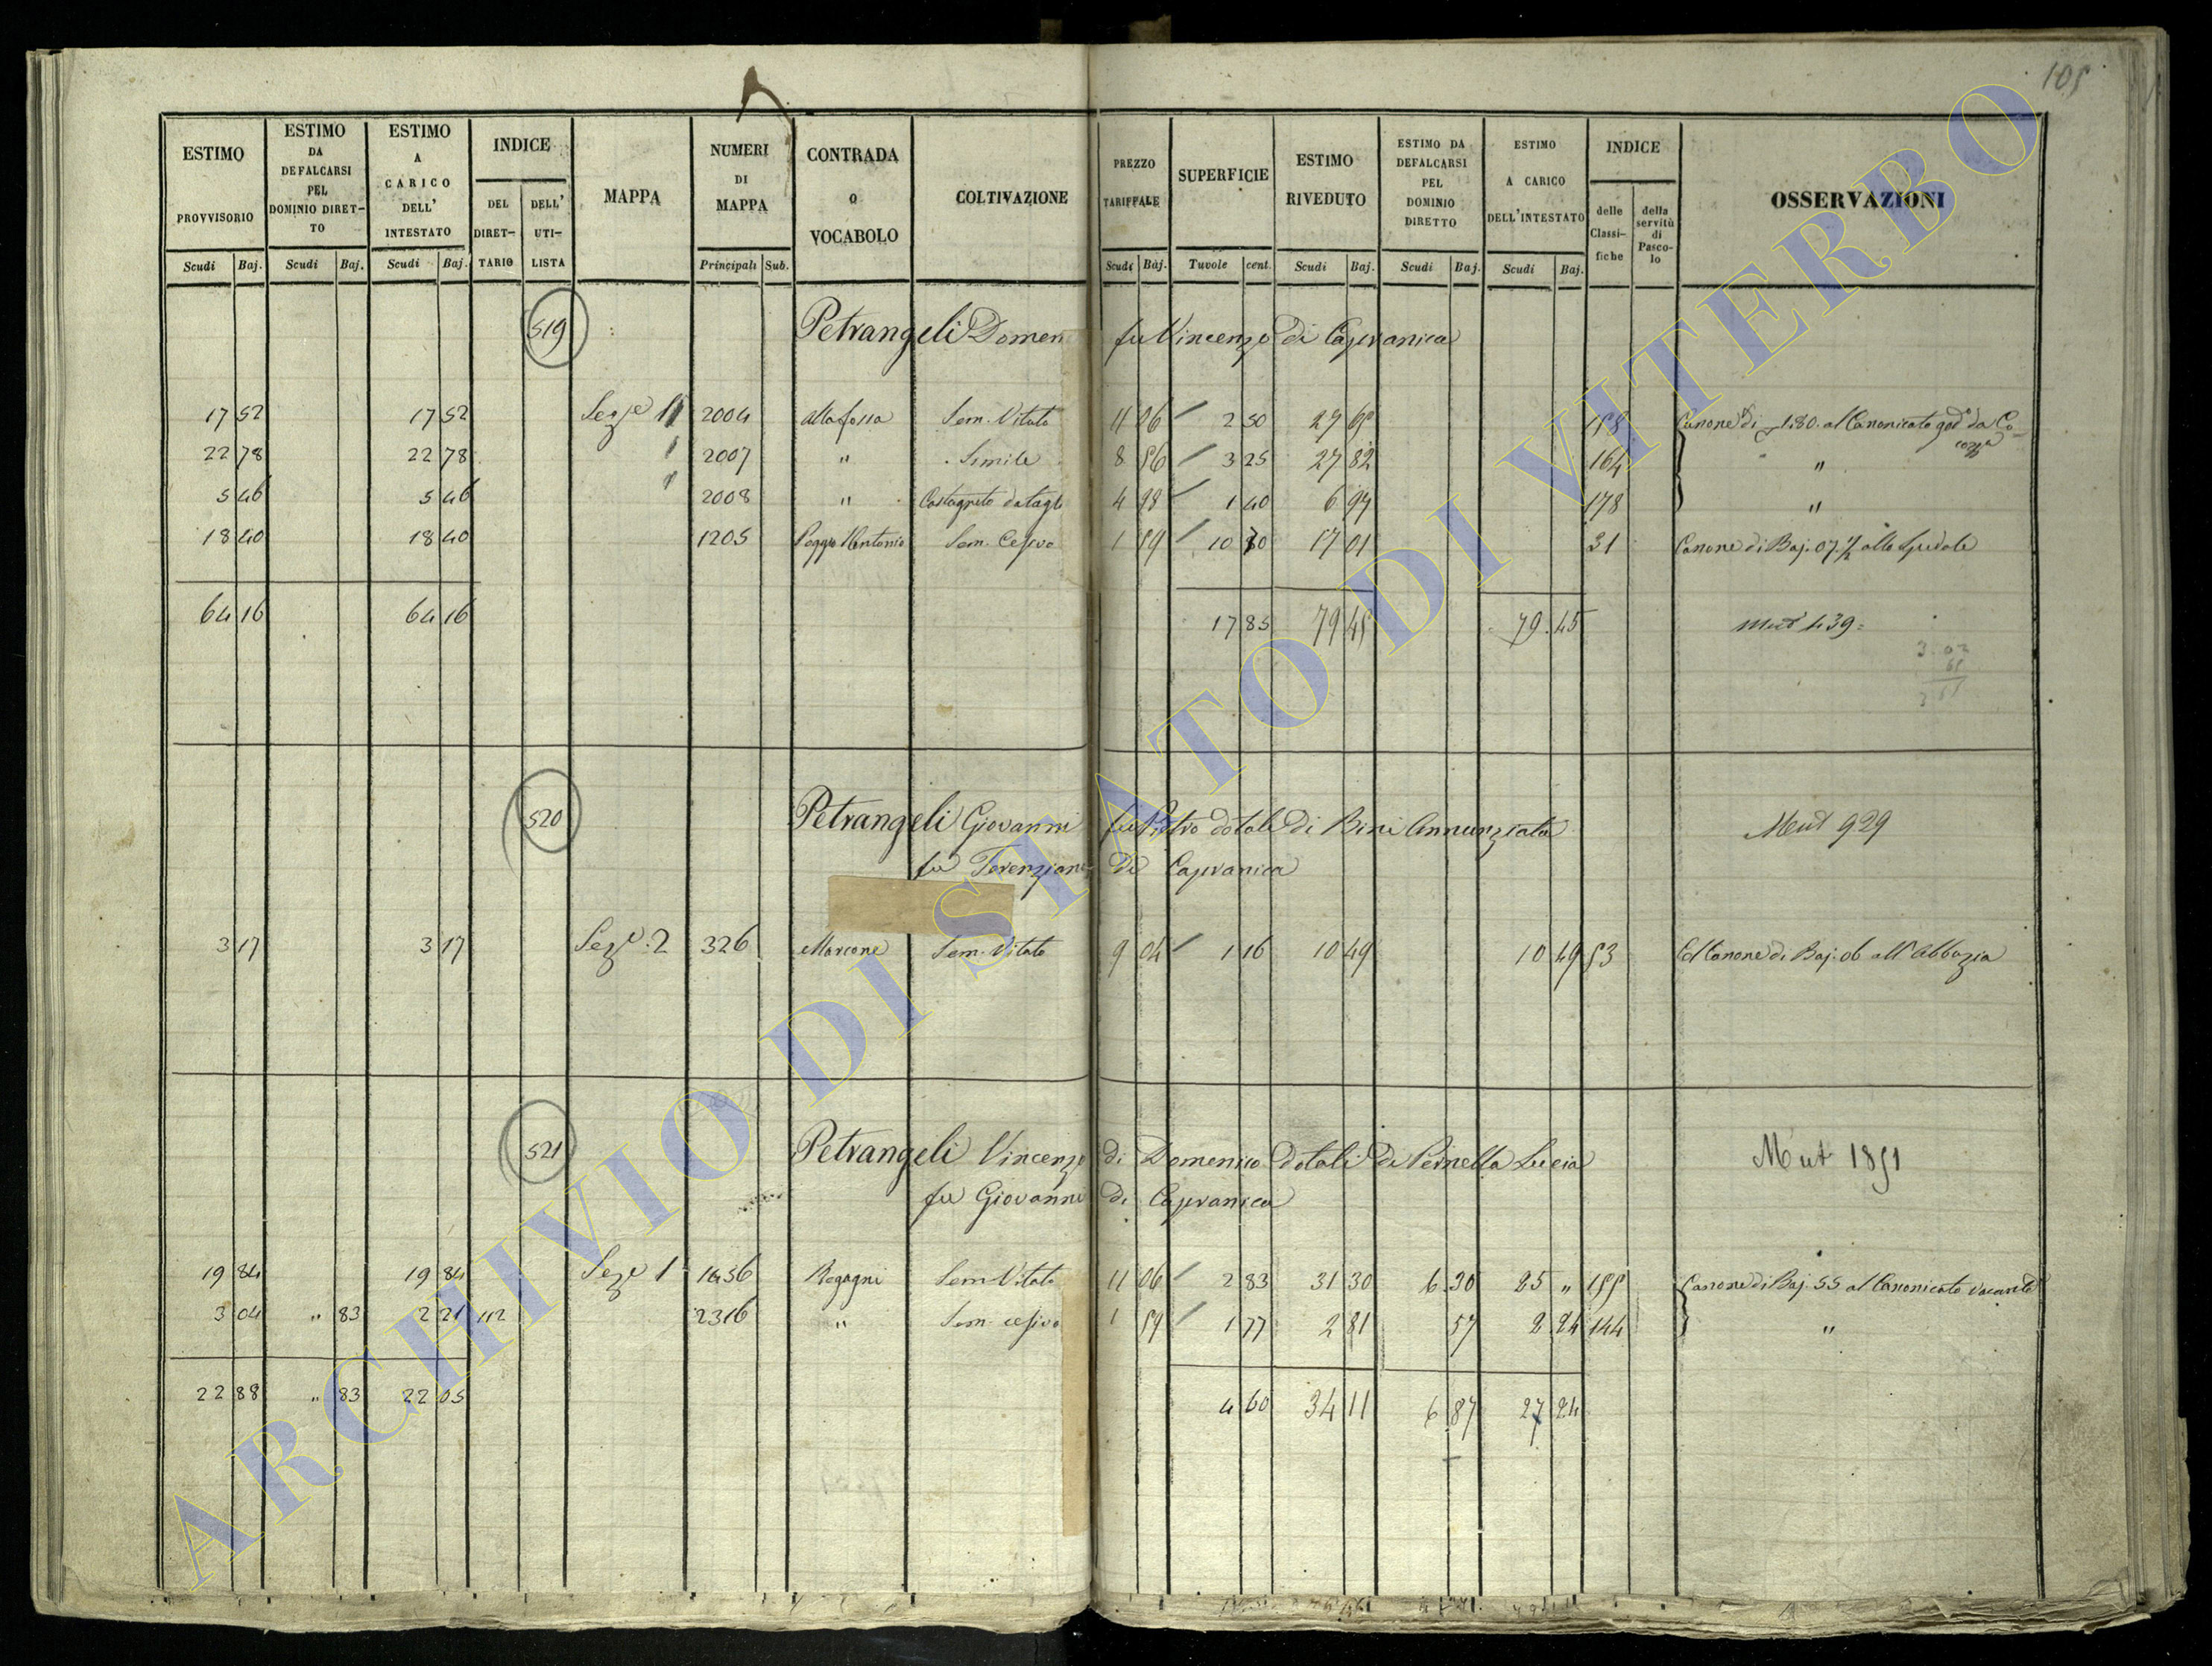 105
ESTIMO PROVVISORIO Scudi Baj.
ESTIMO DA DEFALCARSI PEL DOMINIO DIRET- TO Scudi Baj.
ESTIMO A CARICO DELL' INTESTATO Scudi Baj.
INDICE DEL DIRET- TARIO DELL' UTI- LISTA
MAPPA
NUMERI DI MAPPA Principali Sub.
CONTRADA O VOCABOLO
COLTIVAZIONE
PREZZO TARIFFALE Scudi Baj.
SUPERFICIE Tavole cent.
ESTIMO RIVEDUTO Scudi Baj.
ESTIMO DA DEFALCARSI PEL DOMINIO DIRETTO Scudi Baj.
ESTIMO A CARICO DELL'INTESTATO Scudi Baj.
INDICE delle Classi- fiche della servitù di Pasco- lo
OSSERVAZIONI
519 Petrangeli Domen fu Vincenzo di Capranica
17 52 17 52 Sez.e 1 2004 alla fossa Sem. Vitato 11 06 2 50 27 65 158 Canone di 1:80. al Canonicato god. da Co-
cozza
22 78 22 78 2007 " Simile 8 56 3 25 27 82 164 "
5 46 5 46 2008 " Castagneto da taglo 4 98 1 40 6 97 178 "
18 40 18 40 1205 Poggio Antonio Sem. Cesivo 1 59 10 70 17 01 31 Canone di Baj. 07 ½ allo Spedale
64 16 64 16 17 85 79 45 79.45 Mut 439
3.07
520 Petrangeli Giovanni fu Pietro dotali di Bini Annunziata Mut 929
fu Terenziano di Capranica
3 17 3 17 Sez.e 2 326 Marcone Sem. Vitato 9 04 1 16 10 49 10 49 53 Canone di Baj. 06 all'Abbazia
521 Petrangeli Vincenzo di Domenico dotali di Pernella Lucia Mut 1851
fu Giovanni di Capranica
19 84 19 84 Sez.e 1 1636 Regagni Sem. Vitato 11 06 2 83 31 30 6 30 25 " 155 Canone di Baj. 55 al Canonicato vacante
3 04 " 83 2 21 112 2316 " Sem. cesivo 1 59 1 77 2 81 57 2 24 144 "
22 88 " 83 22 05 4 60 34 11 6 87 27 24
ARCHIVIO DI STATO DI VITERBO